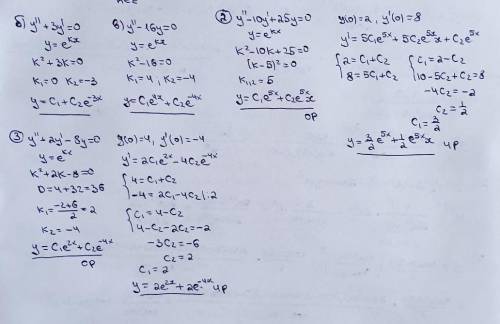 б) y''+3y'=0
y=e^{kx}
k²+3k=0
k₁=0 k₂=-3
y=C₁+C₂e^{-3x}
в) y''-16y=0
y=e^{kx}
k²-16=0
k₁=4, k₂=-4
y=C₁e^{4x}+C₂e^{-4x}
② y''-10y'+25y=0
y=e^{kx}
k²-10k+25=0
(k-5)²=0
k₁,₂=5
y=C₁e^{5x}+C₂e^{5x}x
ОР
y(0)=2, y'(0)=8
y'=5C₁e^{5x}+5C₂e^{5x}x+C₂e^{5x}
{2=C₁+C₂ {C₁=2-C₂
8=5C₁+C₂ 10-5C₂+C₂=8
-4C₂=-2
C₂=1/2
C₁=3/2
y=3/2e^{5x}+1/2e^{5x}x ЧР
③ y''+2y'-8y=0
y=e^{kx}
k²+2k-8=0
D=4+32=36
k₁=(-2+6)/2=2
k₂=-4
y=C₁e^{2x}+C₂e^{-4x}
ОР
y(0)=4, y'(0)=-4
y'=2C₁e^{2x}-4C₂e^{-4x}
{4=C₁+C₂
-4=2C₁-4C₂ |:2
{C₁=4-C₂
4-C₂-2C₂=-2
-3C₂=-6
C₂=2
C₁=2
y=2e^{2x}+2e^{-4x} ЧР